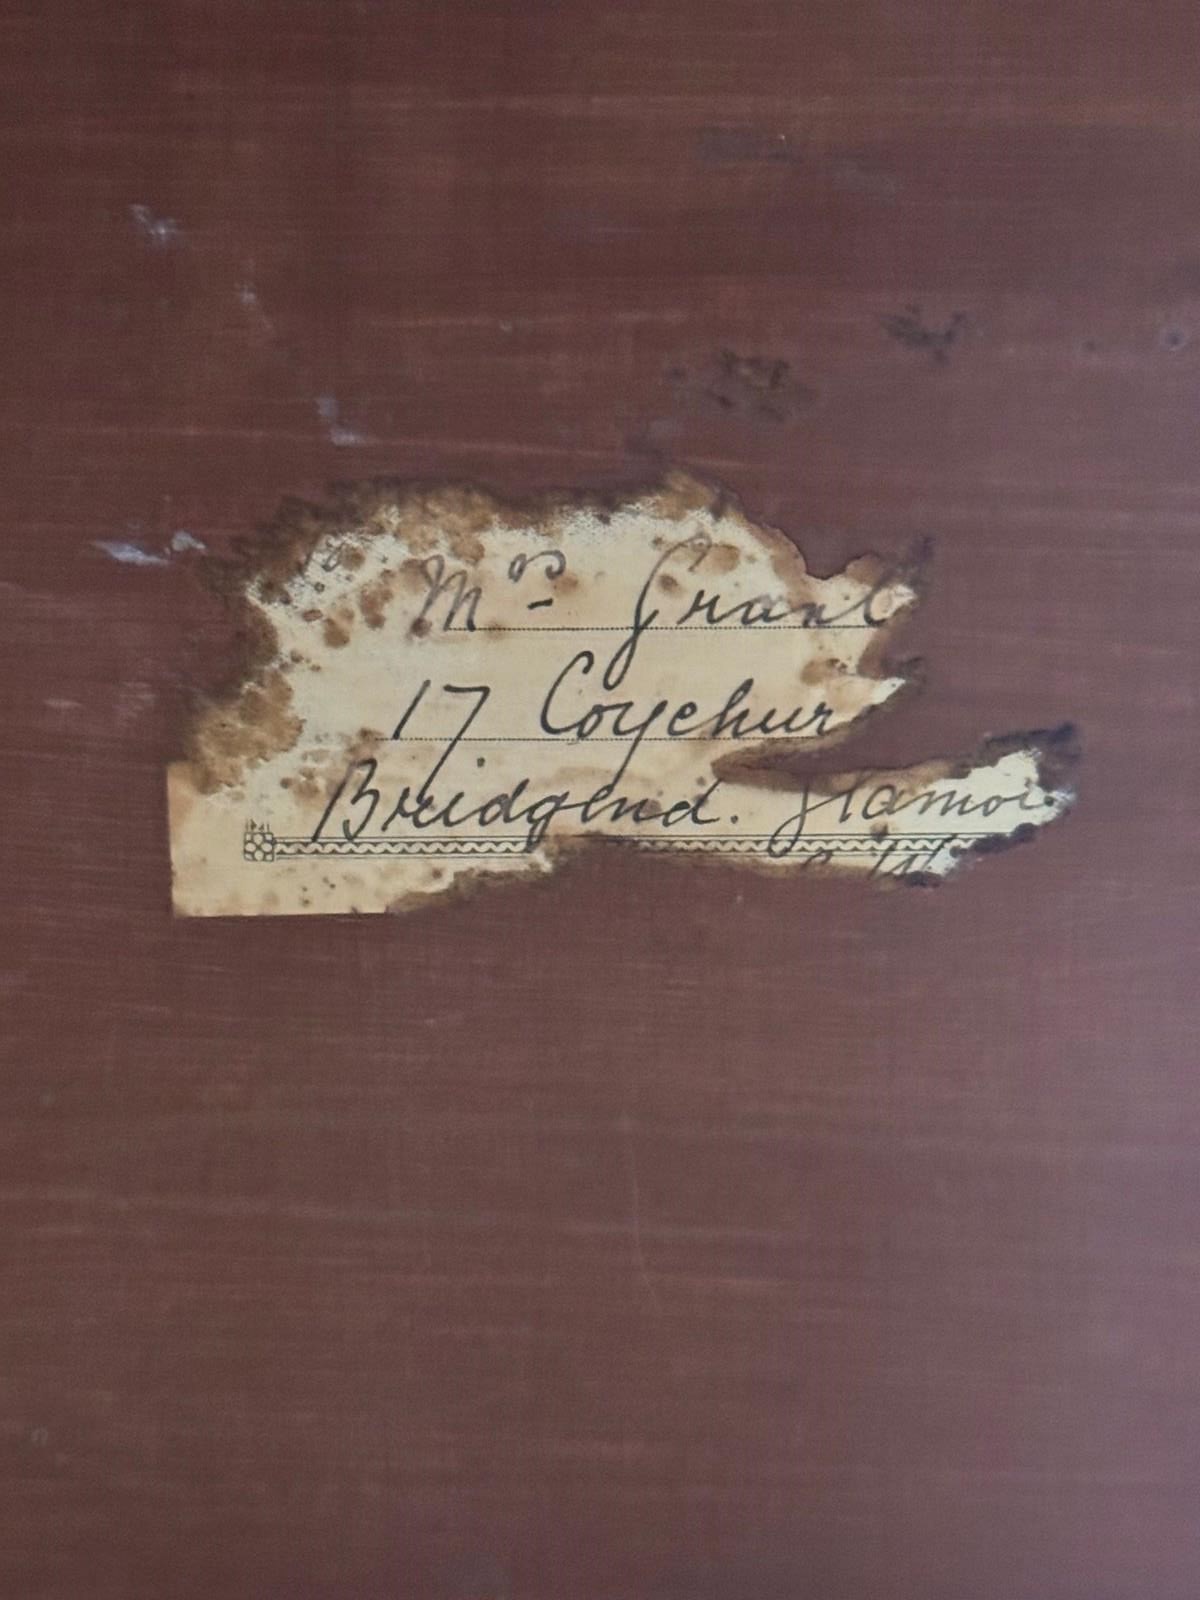 Mrs Grant
17 Coychur
Bridgend. Glamor